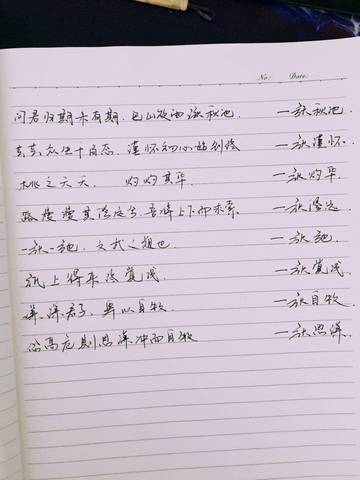 No: Date:
问君归期未有期,巴山夜雨涨秋池。 — 张秋池
芸芸众生千百态,谨怀初心始到终 — 张谨怀
桃之夭夭, 灼灼其华 — 张灼华
路漫漫其修远兮,吾将上下而求索 — 张
一张一弛,文武之道也 — 张弛
纸上得来终觉浅 — 张觉浅
谦谦君子,卑以自牧 — 张自牧
高危则思谦冲而自牧 — 张思谦